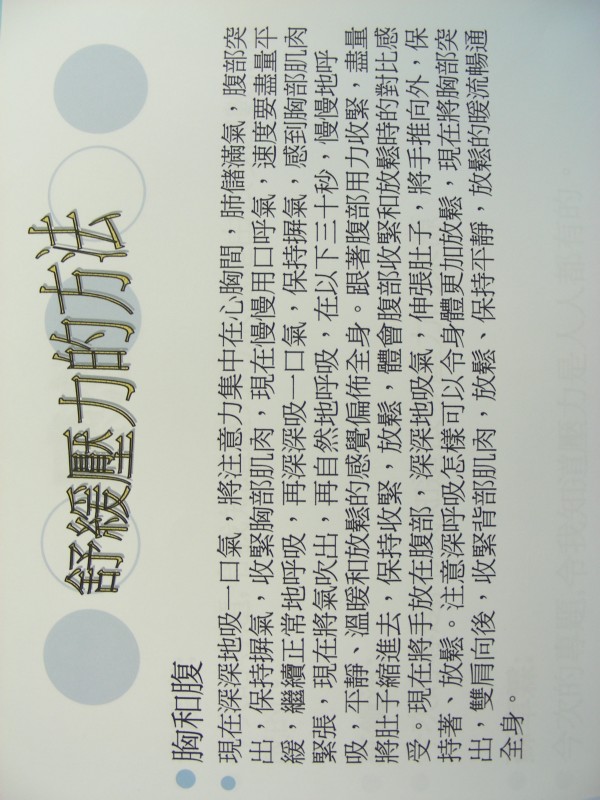 舒緩壓力的方法
胸和腹
現在深深地吸一口氣，將注意力集中在心胸間，肺儲滿氣，腹部突
出，保持摒氣，收緊胸部肌肉，現在慢慢用口呼氣，速度要盡量平
緩，繼續正常地呼吸，再深深吸一口氣，保持摒氣，感到胸部肌肉
緊張，現在將氣吹出，再自然地呼吸，在以下三十秒，慢慢地呼
吸，平靜、溫暖和放鬆的感覺偏佈全身。跟著腹部用力收緊，盡量
將肚子縮進去，保持收緊，放鬆，體會腹部收緊和放鬆時的對比感
受。現在將手放在腹部，深深地吸氣，伸張肚子，將手推向外，保
持著、放鬆。注意深呼吸怎樣可以令身體更加放鬆，現在將胸部突
出，雙肩向後，收緊背部肌肉，放鬆、保持平靜，放鬆的暖流暢通
全身。